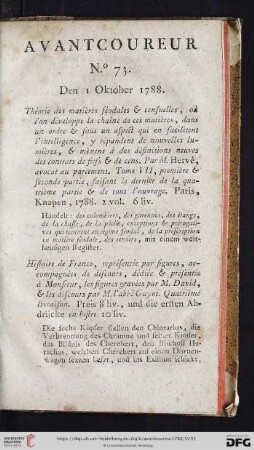 AVANTCOUREUR
N.º 73.
Den 1 Oktober 1788.
Théorie des matières féodales & censuelles, où
l'on développe la chaîne de ces matières, dans
un ordre & sous un aspect qui en facilitent
l'intelligence, y répandent de nouvelles lu-
mières, & mènent à des définitions neuves
des contrats de fiefs & de cens. Par M. Hervé,
avocat au parlement. Tome VII, première &
seconde partie, faisant la dernière de la qua-
trième partie & de tout l'ouvrage. Paris,
Knapen, 1788. 2 vol. 6 liv.
Handelt: des colombiers, des garennes, des étangs,
de la chasse, de la pêche, exceptions & prérogati-
ves qui tiennent au régime féodal, de la prescription
en matière féodale, des terriers, mit einem weit-
läufigen Register.
Histoire de France, représentée par figures, ac-
compagnées de discours, dédiée & présentée
à Monsieur, les figures gravées par M. David,
& les discours par M. l'abbé Guyot. Quatrième
livraison. Preis 8 liv., und die ersten Ab-
drücke en bistre 10 liv.
Die sechs Kupfer stellen den Chlotarius, die
Verbrennung des Chramne und seiner Kinder,
das Bildnis des Cherebert, den Bischoff He-
raclius, welchen Cherebert auf einem Dornen-
wagen setzen laesst, und ins Exilium schickt,
http://digi.ub.uni-heidelberg.de/diglit/avantcoureur1788/0293
© Universitätsbibliothek Heidelberg
gefördert durch die
DFG